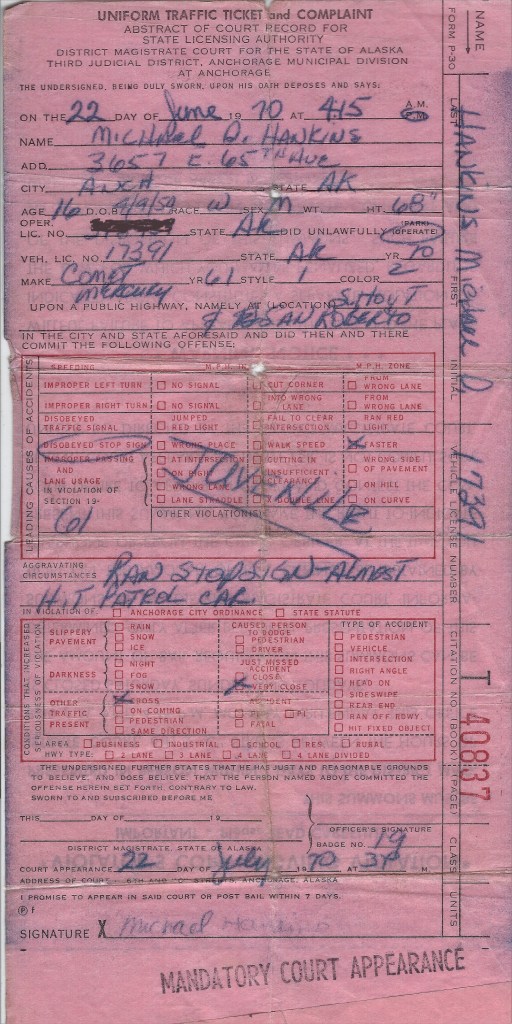 UNIFORM TRAFFIC TICKET and COMPLAINT
ABSTRACT OF COURT RECORD FOR
STATE LICENSING AUTHORITY
DISTRICT MAGISTRATE COURT FOR THE STATE OF ALASKA
THIRD JUDICIAL DISTRICT, ANCHORAGE MUNICIPAL DIVISION
AT ANCHORAGE
THE UNDERSIGNED, BEING DULY SWORN, UPON HIS OATH DEPOSES AND SAYS:
ON THE 22 DAY OF June 1970 AT 415 A.M. P.M.
NAME MICHAEL D. HANKINS
ADD. 3657 E. 65TH AVE
CITY ANCH STATE AK
AGE 16 D.O.B. 4/9/54 RACE W SEX M WT. HT. 68"
OPER. LIC. NO. STATE AK DID UNLAWFULLY (PARK) (OPERATE)
VEH. LIC. NO. 17391 STATE AK YR 70
MAKE Comet Mercury YR 61 STYLE 1 COLOR 2
UPON A PUBLIC HIGHWAY, NAMELY AT (LOCATION) S. HOYT
& SAN ROBERTO
IN THE CITY AND STATE AFORESAID AND DID THEN AND THERE
COMMIT THE FOLLOWING OFFENSE:
LEADING CAUSES OF ACCIDENTS
SPEEDING M.P.H. IN M.P.H. ZONE
IMPROPER LEFT TURN NO SIGNAL CUT CORNER FROM WRONG LANE
IMPROPER RIGHT TURN NO SIGNAL INTO WRONG LANE FROM WRONG LANE
DISOBEYED TRAFFIC SIGNAL JUMPED RED LIGHT FAIL TO CLEAR INTERSECTION RAN RED LIGHT
DISOBEYED STOP SIGN WRONG PLACE WALK SPEED X FASTER
IMPROPER PASSING AND LANE USAGE AT INTERSECTION CUTTING IN WRONG SIDE OF PAVEMENT
ON RIGHT INSUFFICIENT CLEARANCE
IN VIOLATION OF WRONG LANE ON HILL
SECTION 19- LANE STRADDLE X DOUBLE LINE ON CURVE
61 OTHER VIOLATION(S)
AGGRAVATING CIRCUMSTANCES RAN STOP SIGN-ALMOST
HIT PATROL CAR
IN VIOLATION OF: ANCHORAGE CITY ORDINANCE STATE STATUTE
CONDITIONS THAT INCREASED SERIOUSNESS OF VIOLATION
SLIPPERY PAVEMENT RAIN SNOW ICE
CAUSED PERSON TO DODGE PEDESTRIAN DRIVER
DARKNESS NIGHT FOG SNOW
JUST MISSED ACCIDENT CLOSE X VERY CLOSE
OTHER TRAFFIC PRESENT X CROSS ON-COMING PEDESTRIAN SAME DIRECTION
PI FATAL
TYPE OF ACCIDENT
PEDESTRIAN
VEHICLE
INTERSECTION
RIGHT ANGLE
HEAD ON
SIDESWIPE
REAR END
RAN OFF RDWY
HIT FIXED OBJECT
AREA BUSINESS INDUSTRIAL SCHOOL RES. RURAL
HWY TYPE: 2 LANE 3 LANE 4 LANE 4 LANE DIVIDED
THE UNDERSIGNED FURTHER STATES THAT HE HAS JUST AND REASONABLE GROUNDS
TO BELIEVE, AND DOES BELIEVE, THAT THE PERSON NAMED ABOVE COMMITTED THE
OFFENSE HEREIN SET FORTH, CONTRARY TO LAW.
SWORN TO AND SUBSCRIBED BEFORE ME
THIS DAY OF 19
OFFICER'S SIGNATURE
DISTRICT MAGISTRATE, STATE OF ALASKA BADGE NO. 19
COURT APPEARANCE 22 DAY OF July 1970 AT 3P M.
ADDRESS OF COURT 6TH AND STREETS, ANCHORAGE, ALASKA
I PROMISE TO APPEAR IN SAID COURT OR POST BAIL WITHIN 7 DAYS.
SIGNATURE X Michael Hankins
MANDATORY COURT APPEARANCE
FORM P-30
NAME LAST FIRST INITIAL VEHICLE LICENSE NUMBER CITATION NO. (BOOK) (PAGE) CLASS UNITS
HANKINS Michael D 17391
T 40837